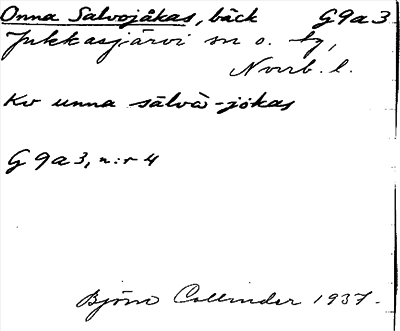 Onna Salvojåkas, bäck G9a3
Jukkasjärvi sn o. tg,
Norrb. l.
Kv unna sālvà-jokas
G 9a3, n:r 4
Björn Collinder 1937.